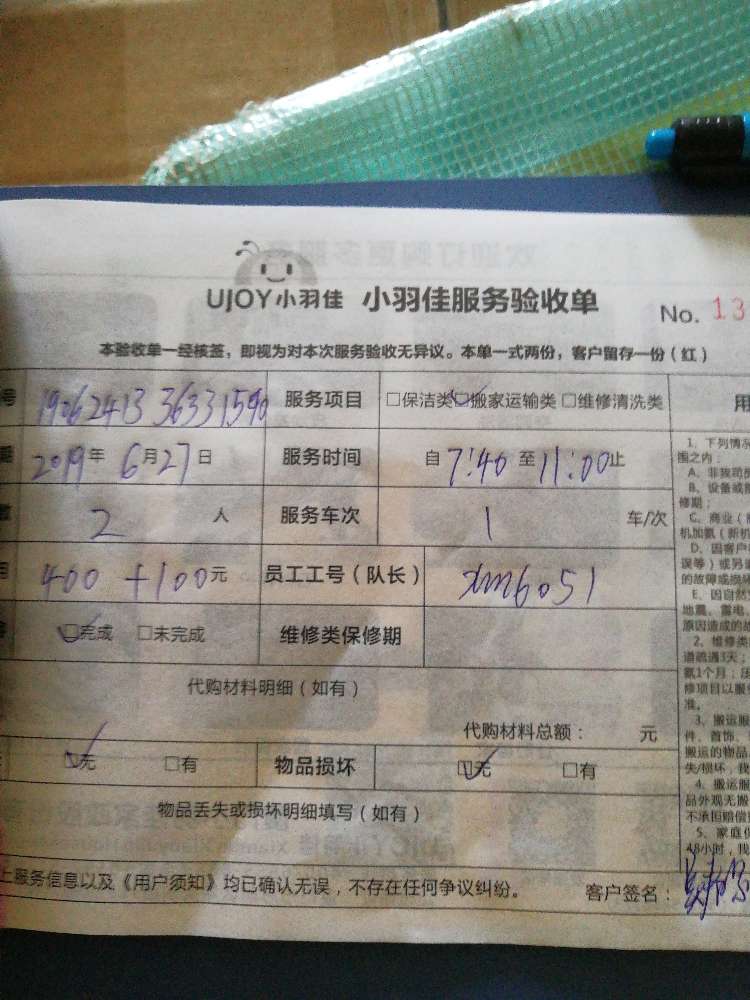 UJOY小羽佳 小羽佳服务验收单 No. 13
本验收单一经核签，即视为对本次服务验收无异议。本单一式两份，客户留存一份（红）
号 1906241336331590 服务项目 □保洁类 ☑搬家运输类 □维修清洗类 用
2019年6月27日 服务时间 自7:40至11:00止
2 人 服务车次 1 车/次
400+100元 员工工号（队长） xm6051
☑完成 □未完成 维修类保修期
代购材料明细（如有）
代购材料总额： 元
☑无 □有 物品损坏 ☑无 □有
物品丢失或损坏明细填写（如有）
上服务信息以及《用户须知》均已确认无误，不存在任何争议纠纷。 客户签名：
1、下列情况
围之内：
A、非我司
B、设备或
修期；
C、商业（
机加氨（新机
D、因客户
误等）或另
的故障或损
E、因自然
地震、雷电
原因造成的故
2、维修类
道疏通3天；
氨1个月；压
修项目以服
准。
3、搬运服
件、首饰、
搬运的物品
失/损坏，我
4、搬运服
品外观无搬
不承担赔偿
5、家庭
48小时，我